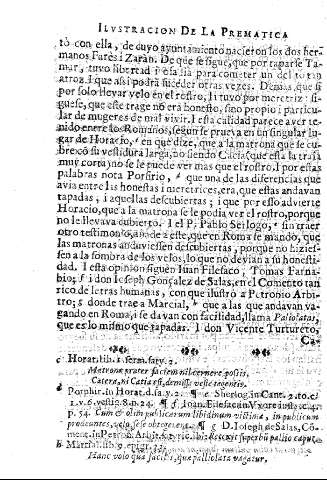 ILVSTRACION DE LA PREMATICA
tò con ella, de cuyo ayuntamiento nacieron los dos her-
manos Farès i Zaràn. De que se sigue, que por taparse Ta-
mar, tuvo libertad i osadia para cometer un delito tan
atroz. I que assi podrà suceder otras vezes. Demàs, que si
por solo llevar velo en el rostro, la tuvo por meretriz: si-
guese, que este trage no era honesto, sino propio i particu-
lar de mugeres de mal vivir. I esta calidad parece aver te-
nido entre los Romanos, segun se prueva en un singular lu-
gar de Horacio, c en que dize, que a la matrona que se cu-
bre có su vestidura larga, no siendo Cacia (que esta la traìa
muy corta) no se le puede ver mas que el rostro. I por estas
palabras nota Porfirio, d que una de las diferencias que
avia entre las honestas i meretrices, era, que estas andavan
tapadas, i aquellas descubiertas; i que por esso advierte
Horacio, que a la matrona se le podia ver el rostro, porque
no le llevava cubierto. I el P. Pablo Serlogo, e sin traer
otro testimonio que de a este, que en Roma se mandò, que
las matronas anduviessen descubiertas, porque no hizies-
sen a la sombra de los velos, lo que no devian a su honesti-
dad. I esta opinion siguen Iuan Filesaco, Tomas Farna-
bio; f i don Iosepb Gonçalez de Salas, en el Comento tan
rico de letras humanas, con que ilustrò a Petronio Arbi-
tro; s donde trae a Marcial, h que a las que andavan va-
gando en Roma, i se davan con facilidad, llama Palioladas,
que es lo mismo que tapadas. I don Vicente Turtureto,
Ca-
c Horat. lib. 1. serm. saty. 2.
Matronæ præter faciem nil cernere possis,
Cætera, ni Catia est, demissa veste tegentis.
d Porphir. in Horat. d. sa. y. 2. ¶ e Sherlog. in Cant. 2. to. c.
1. v. 6. vestig. 8. n. 24. ¶ f Ioan. Filesac. in Vxore iusta, c.
p. 54. Cum & olim publicarum libidinum victima, in publicum
prodeuntes, velo sese obtegerent. ¶ g D. Ioseph de Salas, Cō-
ment. in Petron. Arbit. Satyric. ibi: Retexit superbū pallio caput.
h Marcial. lib. 9. epigr. 33.
Hanc volo quæ facilis, quæ palliolata vagatur.